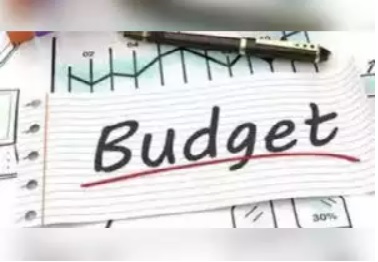 07 04
Budget
30%